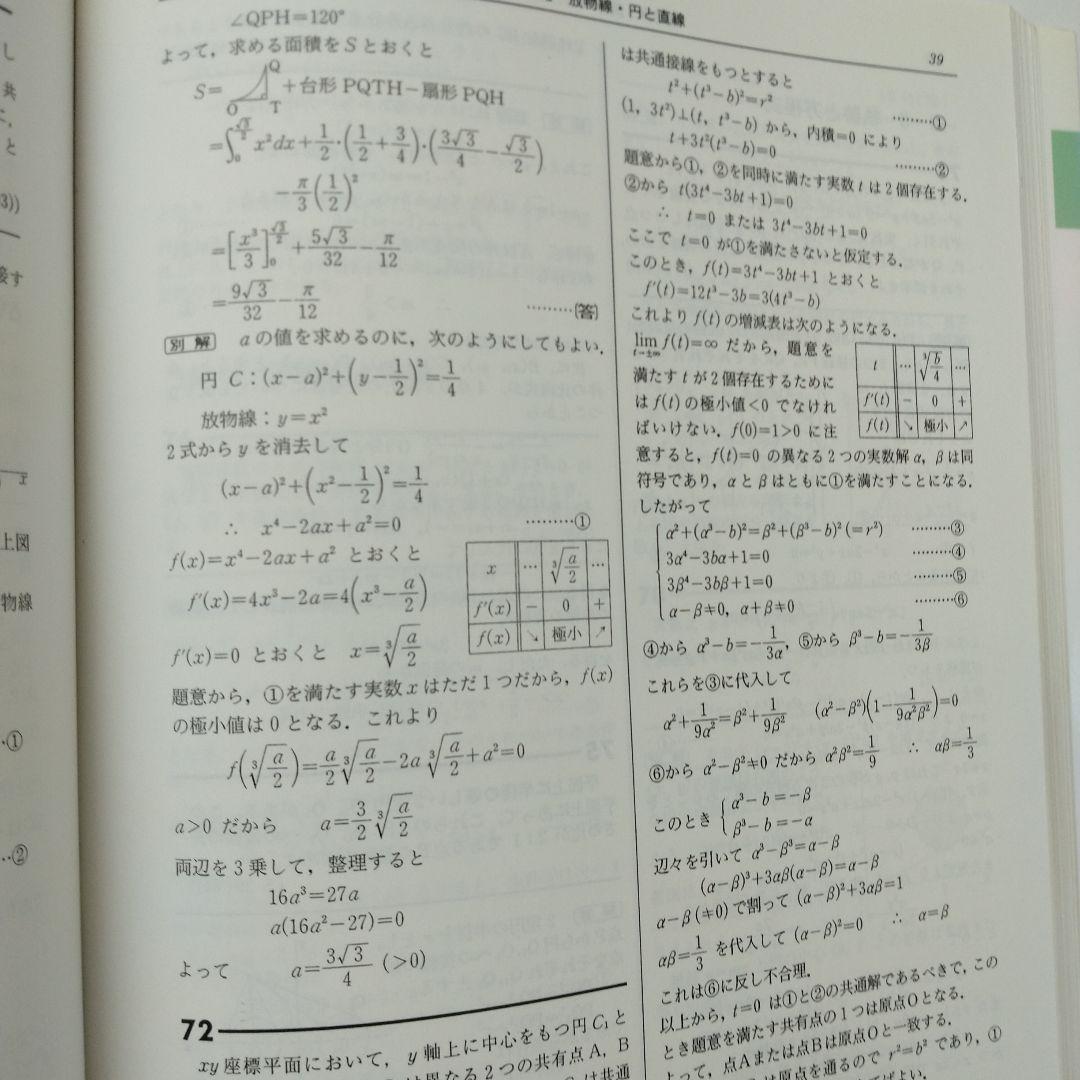 放物線・円と直線
39
∠QPH=120°
よって，求める面積をSとおくと
S= Q O T +台形PQTH－扇形PQH
=∫₀^{√3/2} x²dx+1/2・(1/2+3/4)・(3√3/4－√3/2)
－π/3(1/2)²
=[x³/3]₀^{√3/2}+5√3/32－π/12
=9√3/32－π/12 ………(答)
別解 aの値を求めるのに，次のようにしてもよい．
円 C：(x－a)²+(y－1/2)²=1/4
放物線：y=x²
2式からyを消去して
(x－a)²+(x²－1/2)²=1/4
∴ x⁴－2ax+a²=0 ………①
f(x)=x⁴－2ax+a² とおくと
f′(x)=4x³－2a=4(x³－a/2)
f′(x)=0 とおくと x=∛(a/2)
x … ∛(a/2) …
f′(x) － 0 ＋
f(x) ↘ 極小 ↗
題意から，①を満たす実数xはただ1つだから，f(x)
の極小値は0となる．これより
f(∛(a/2))=a/2 ∛(a/2)－2a ∛(a/2)+a²=0
a>0 だから a=3/2 ∛(a/2)
両辺を3乗して，整理すると
16a³=27a
a(16a²－27)=0
よって a=3√3/4 (>0)
72
xy座標平面において，y軸上に中心をもつ円C₁と
異なる2つの共有点A，B
は共通
は共通接線をもつとすると
t²+(t³－b)²=r² ………①
(1, 3t²)⊥(t, t³－b) から，内積=0 により
t+3t²(t³－b)=0 ………②
題意から①，②を同時に満たす実数tは2個存在する．
②から t(3t⁴－3bt+1)=0
∴ t=0 または 3t⁴－3bt+1=0
ここで t=0 が①を満たさないと仮定する．
このとき，f(t)=3t⁴－3bt+1 とおくと
f′(t)=12t³－3b=3(4t³－b)
これより f(t)の増減表は次のようになる．
t … ∛(b/4) …
f′(t) － 0 ＋
f(t) ↘ 極小 ↗
lim_{t→±∞} f(t)=∞ だから，題意を
満たすtが2個存在するために
はf(t)の極小値<0でなけれ
ばいけない．f(0)=1>0 に注
意すると，f(t)=0 の異なる2つの実数解α，βは同
符号であり，αとβはともに①を満たすことになる．
したがって
α²+(α³－b)²=β²+(β³－b)²(=r²) ………③
3α⁴－3bα+1=0 ………④
3β⁴－3bβ+1=0 ………⑤
α－β≠0，α+β≠0 ………⑥
④から α³－b=－1/3α，⑤から β³－b=－1/3β
これらを③に代入して
α²+1/9α²=β²+1/9β² (α²－β²)(1－1/9α²β²)=0
⑥から α²－β²≠0 だから α²β²=1/9 ∴ αβ=1/3
このとき α³－b=－β
β³－b=－α
辺々を引いて α³－β³=α－β
(α－β)³+3αβ(α－β)=α－β
α－β(≠0)で割って (α－β)²+3αβ=1
αβ=1/3 を代入して (α－β)²=0 ∴ α=β
これは⑥に反し不合理．
以上から，t=0 は①と②の共通解であるべきで，この
とき題意を満たす共有点の1つは原点Oとなる．
よって，点Aまたは点Bは原点Oと一致する．
は原点を通るので r²=b² であり，①
し
共
と
3))
接す
x
上図
物線
・①
‥②